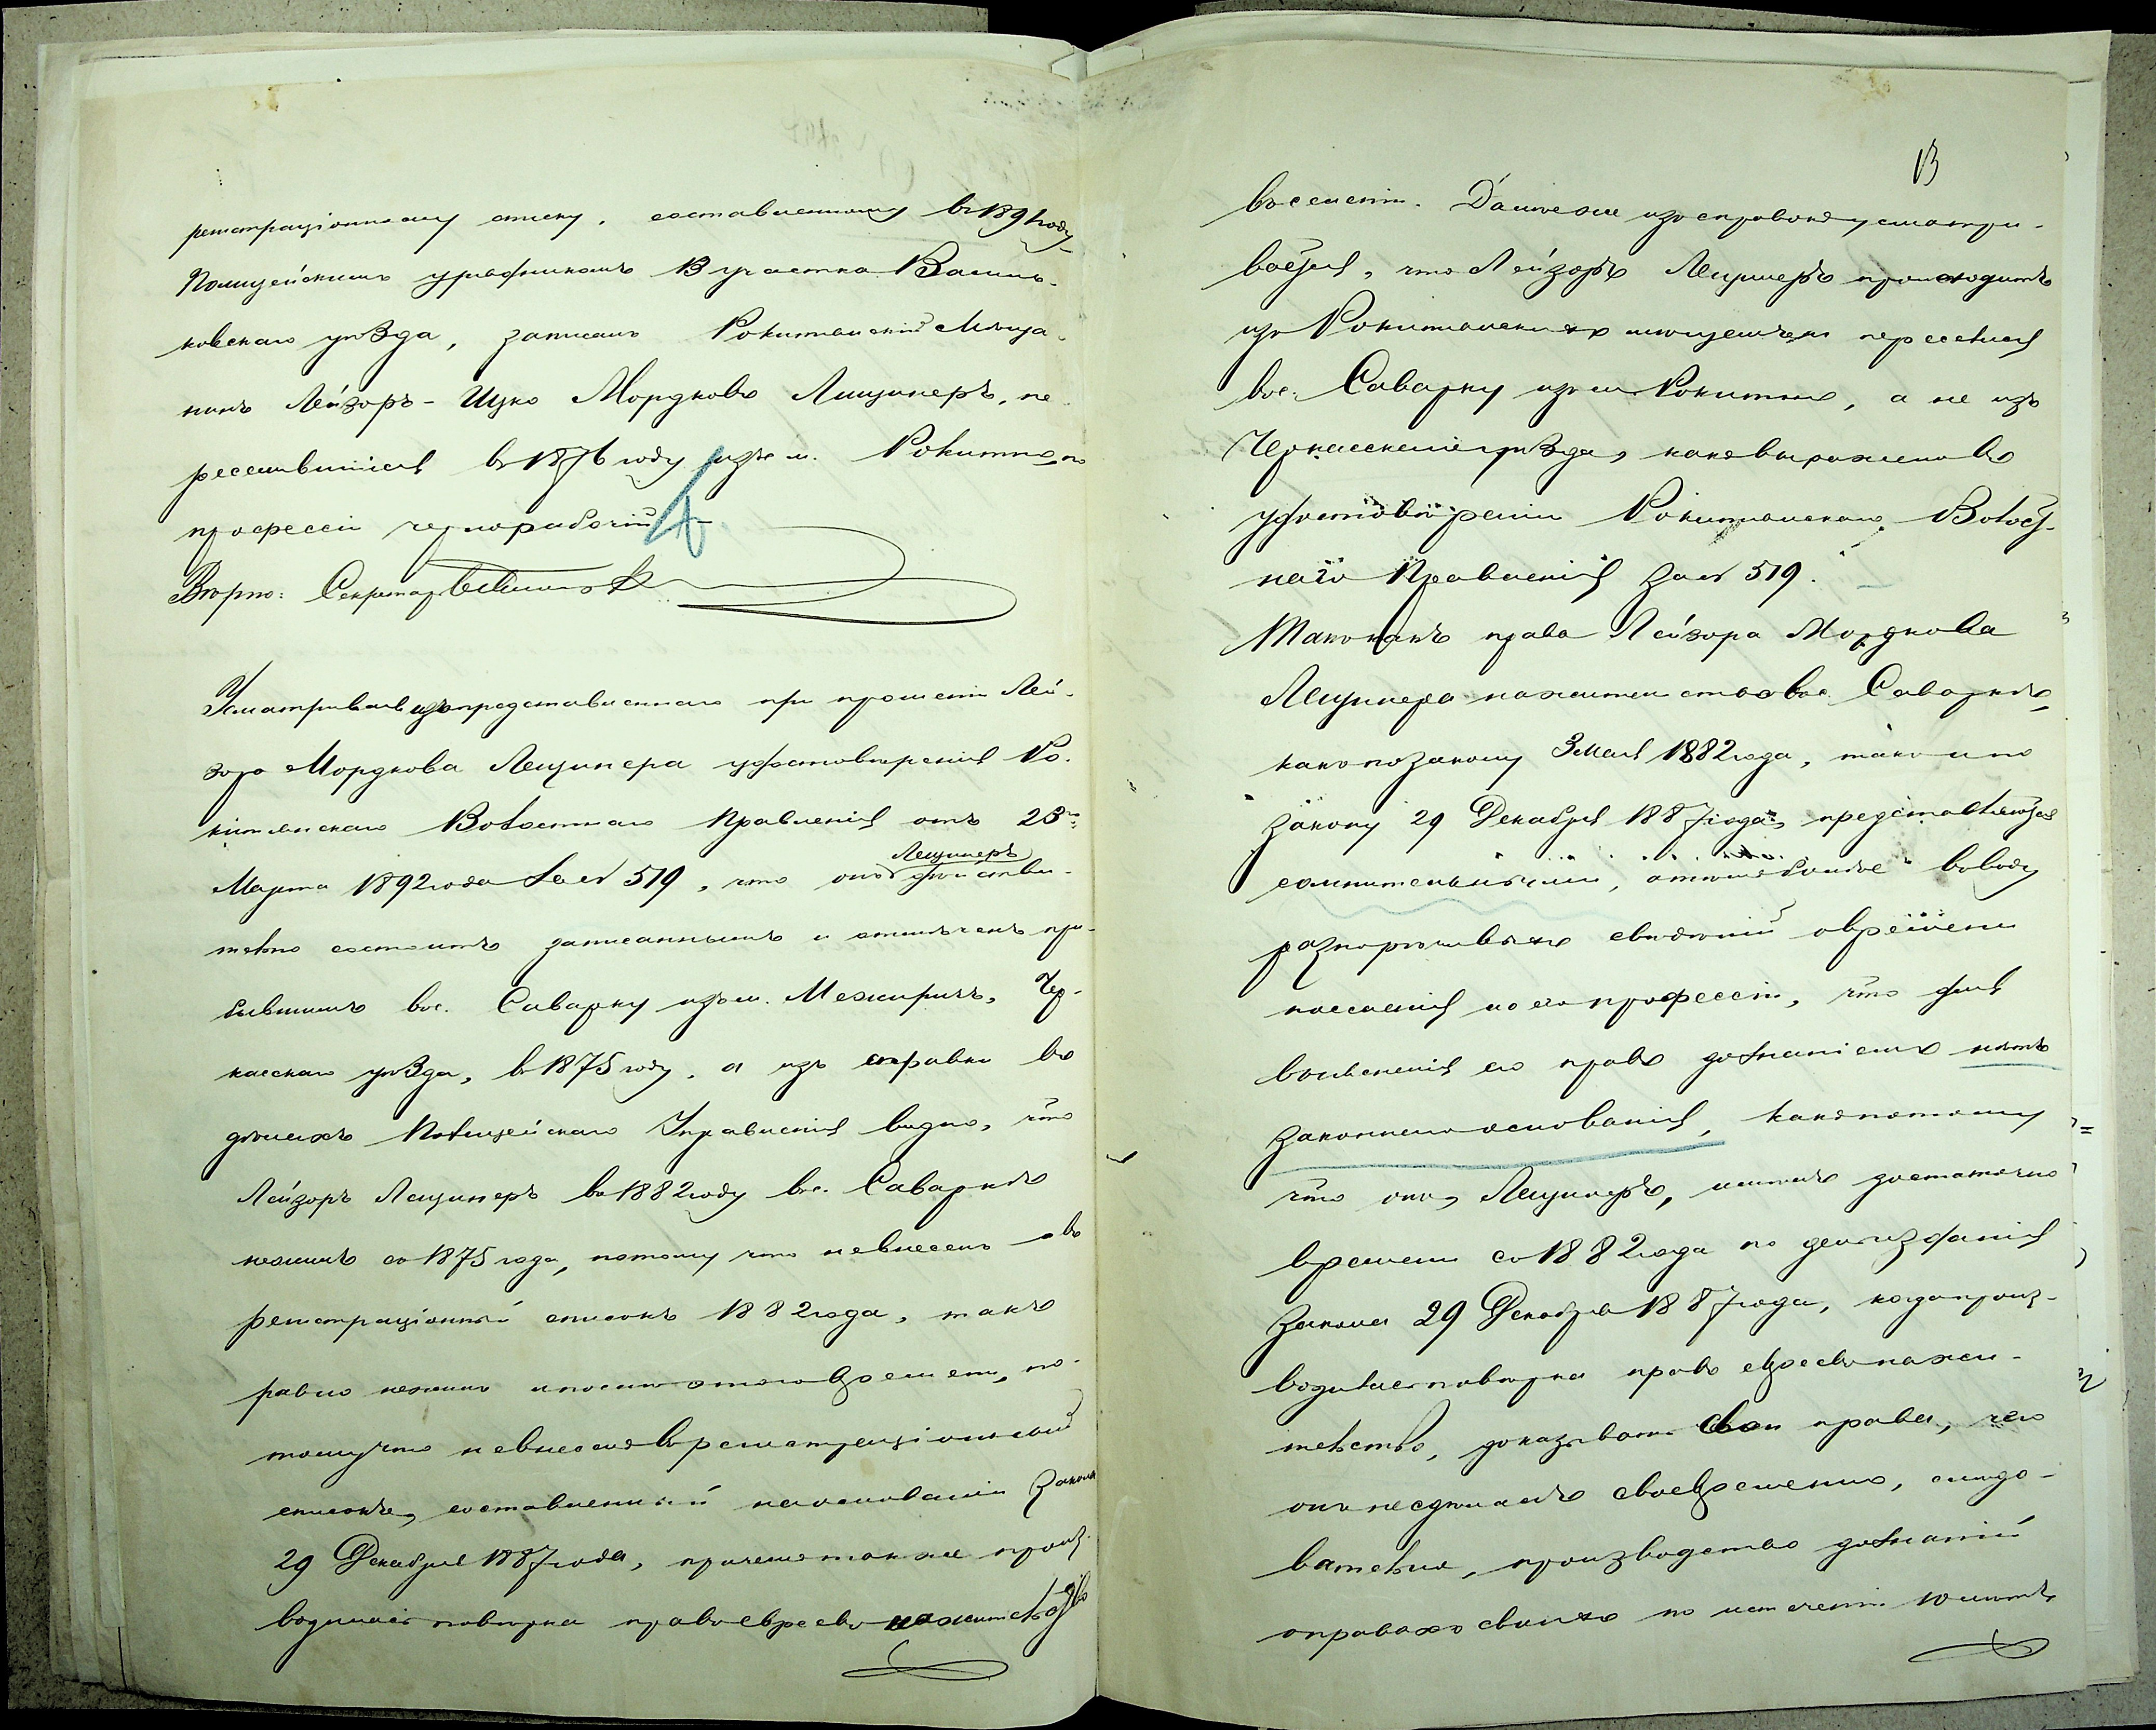 регистраціонному списку, составленному въ 1891 году
Полицейскимъ урядникомъ 13 участка Василь-
ковскаго уѣзда, записанъ Рокитянскій мѣща-
нинъ Лейзоръ-Ицко Мордковъ Лещинеръ, пе-
реселившійся въ 1876 году изъ м. Рокитно, по
профессіи чернорабочій
Вѣрно: Секретарь
Усматривая изъ представленнаго при прошеніи Лей-
зора Мордкова Лещинера удостовѣренія Ро-
китянскаго Волостнаго Правленія отъ 23го
Марта 1892 года за № 519, что онъ Лещинеръ дѣйстви-
тельно состоитъ записаннымъ и отмѣченъ при-
бывшимъ въ с. Саварку изъ м. Межиричъ, Чер-
касскаго уѣзда, въ 1875 году, а изъ справки въ
дѣлахъ Полицейскаго Управленія видно, что
Лейзоръ Лещинеръ въ 1882 году въ с. Саваркѣ
не жилъ съ 1875 года, потому что не внесенъ въ
регистраціонный списокъ 1882 года, такъ
равно не жилъ и послѣ этого времени, по-
тому что не внесенъ въ регистраціонный
списокъ, составленный на основаніи Закона
29 Декабря 1887 года, причемъ также произ-
водилась повѣрка правъ евреевъ на жительство
13
въ селеніи. Далѣе же изъ справокъ усматри-
вается, что Лейзоръ Лещинеръ происходитъ
изъ Рокитянскихъ мѣщанъ и переселился
въ с. Саварку изъ м. Рокитно, а не изъ
Черкасскаго уѣзда, какъ выражено въ
удостовѣреніи Рокитянскаго Волост-
наго Правленія за № 519.
Такъ какъ права Лейзора Мордкова
Лещинера на жительство въ с. Саваркѣ,
какъ по закону 3 мая 1882 года, такъ и по
закону 29 Декабря 1887 года, представляются
сомнительными, въ виду
разнорѣчивыхъ свѣдѣній о времени
поселенія и о его профессіи, что для
выясненія его правъ дознаніемъ нѣтъ
законнаго основанія, какъ потому
что онъ, Лещинеръ, имѣлъ достаточно
времени съ 1882 года по день изданія
Закона 29 Декабря 1887 года, когда произ-
водилась повѣрка правъ евреевъ на жи-
тельство, доказывать свои права, чего
онъ не сдѣлалъ своевременно, слѣдо-
вательно, производство дознаній
о правахъ своихъ по истеченіи 10 лѣтъ